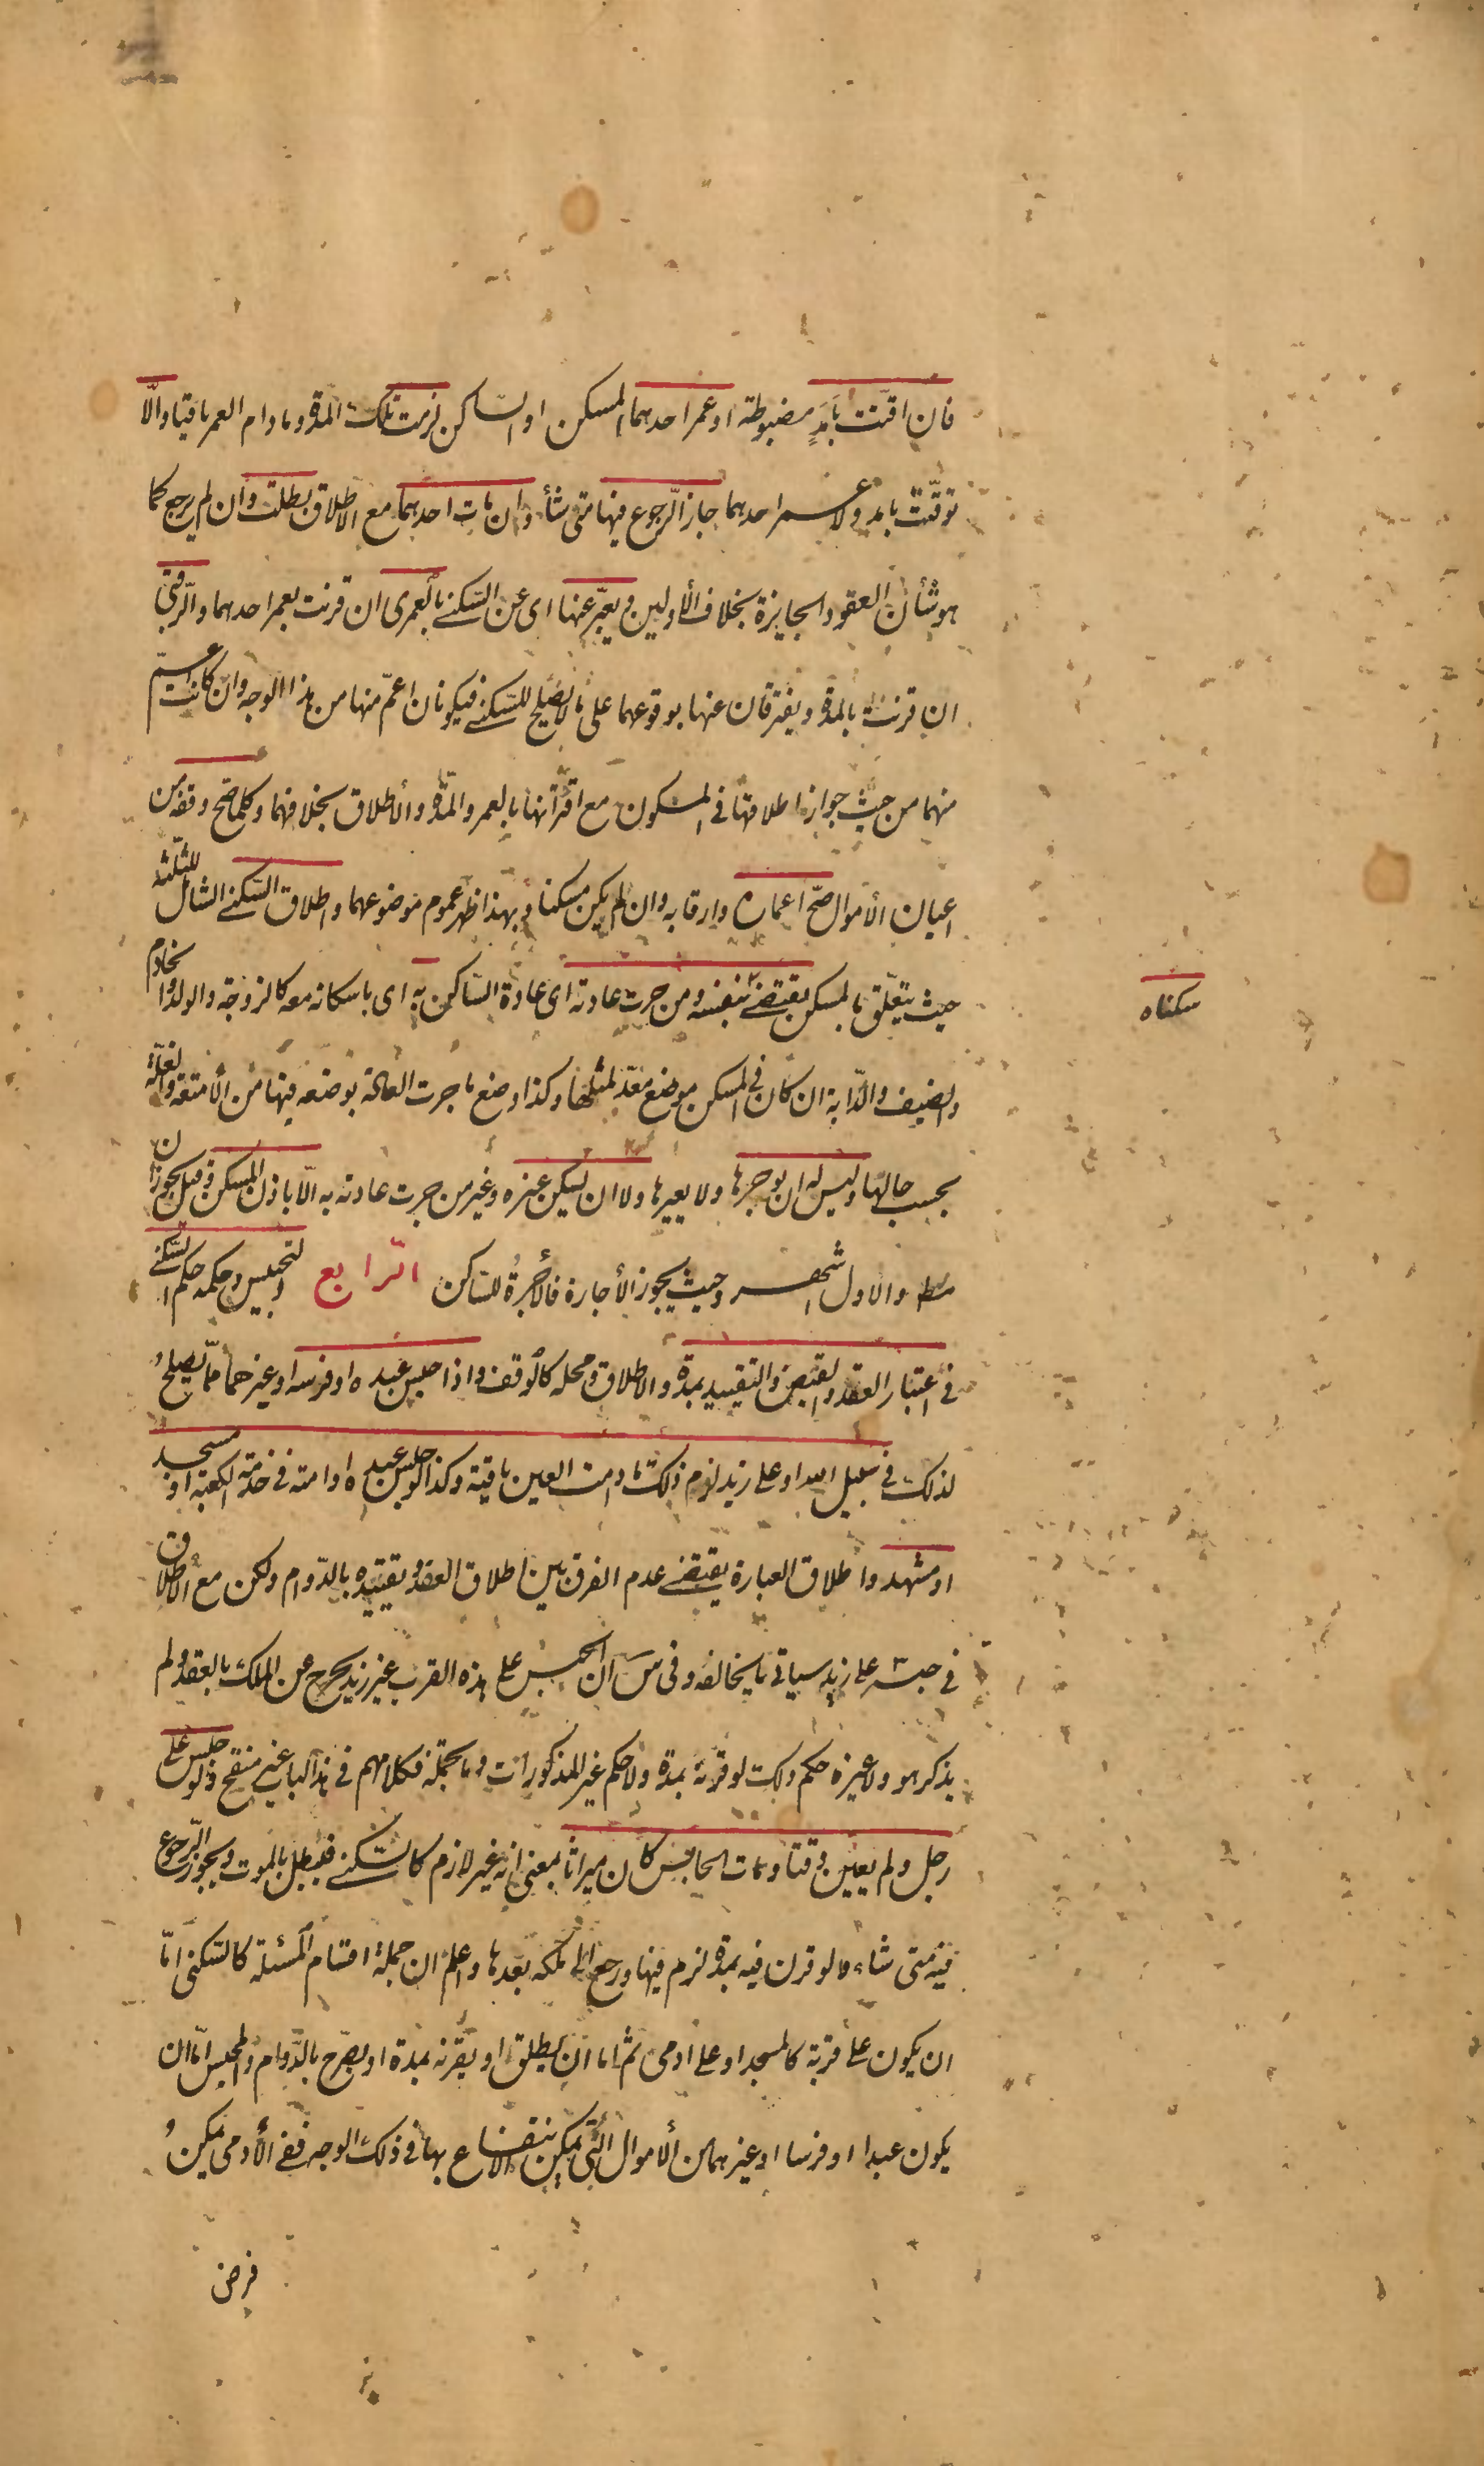 فان اقتت بامد مضبوطة او عمر احدهما المسكن او الساكن لزمت تلك المدة وما دام العمر باقيا والّا
توقّت بامد ولا عمر احدهما جاز الرجوع فيها متى شاء وان مات احدهما مع الاطلاق بطلت وان لم يرجع كما
هو شأن العقود الجايزة بخلاف الأولين ويعبّر عنها اى عن السّكنى بالعمرى ان قرنت بعمر احدهما والرّقبى
ان قرنت بالمدة ويفترقان عنها بوقوعهما على ما لا يصلح للسّكنى فيكونان اعمّ منها من هذا الوجه وان كانت اعمّ
منهما من حيث جواز اطلاقها فى المسكون مع اقترانها بالعمر والمدة والأطلاق بخلافهما وكلما صح وقفه من
اعيان الأموال صحّ اعماره وارقابه وان لم يكن مسكنا وبهذا ظهر عموم موضوعهما واطلاق السّكنى الشامل للثلثة
حيث يتعلّق بالمسكن يقتضى بنفسه ومن جرت عادته اى عادة السّاكن به اى باسكانه معه كالزوجة والولد والخادم
سكناه
والضيف والدّابة ان كان فى المسكن موضع معدّ لمثلها وكذا وضع ما جرت العادة بوضعه فيها من الأمتعة والغلّة
بحسب حالها وليس له ان يوجرها ولا يعيرها ولا ان يسكن غيره وغير من جرت عادته به الّا باذن المسكن وقيل يجوزان
مط والاول اشهر وحيث يجوز الأجارة فالأجرةُ للساكن الرّابع التحبيس وحكمه حكم السّكنى
فى اعتبار العقد والقبض والتقييد بمدة والاطلاق ومحله كالوقف واذا حبس عبده او فرسه او غيرهما ممّا يصلحُ
لذلك فى سبيل الله او على زيد لزم ذلك ما دامت العين باقية وكذا لو حبس عبده او امته فى خدمة الكعبة او مسجد
او مشهد واطلاق العبارة يقتضى عدم الفرق بين اطلاق العقد وتقييده بالدّوام ولكن مع الاطلاق
فى حبسه على زيد سياتى ما يخالفه وفى س ان الحبس على هذه القرب غير زيد يخرج عن الملك بالعقد ولم
يذكر هو ولا غيره حكم ذلك لو قرنه بمدة ولا حكم غير المذكورات وبالجملة فكلامهم فى هذا الباب غير منقح ولو حبس على
رجل ولم يعيّن وقتا ومات الحابس كان ميراثا بمعنى انه غير لازم كالسّكنى فيبطل بالموت ويجوز الرّجوع
فيه متى شاء ولو قرن فيه بمدة لزم فيها ورجع الى ملكه بعدها واعلم ان جملة اقسام المسئلة كالسّكنى امّا
ان يكون على قربة كالمسجد او على ادمى ثم اما ان يطلق او يقرنه بمدة او يصرّح بالدّوام والمحبس امّا ان
يكون عبدا او فرسا او غيرهما من الأموال الّتى يمكن الانتفاع بها فى ذلك الوجه ففى الأدمى يمكنُ
فرض